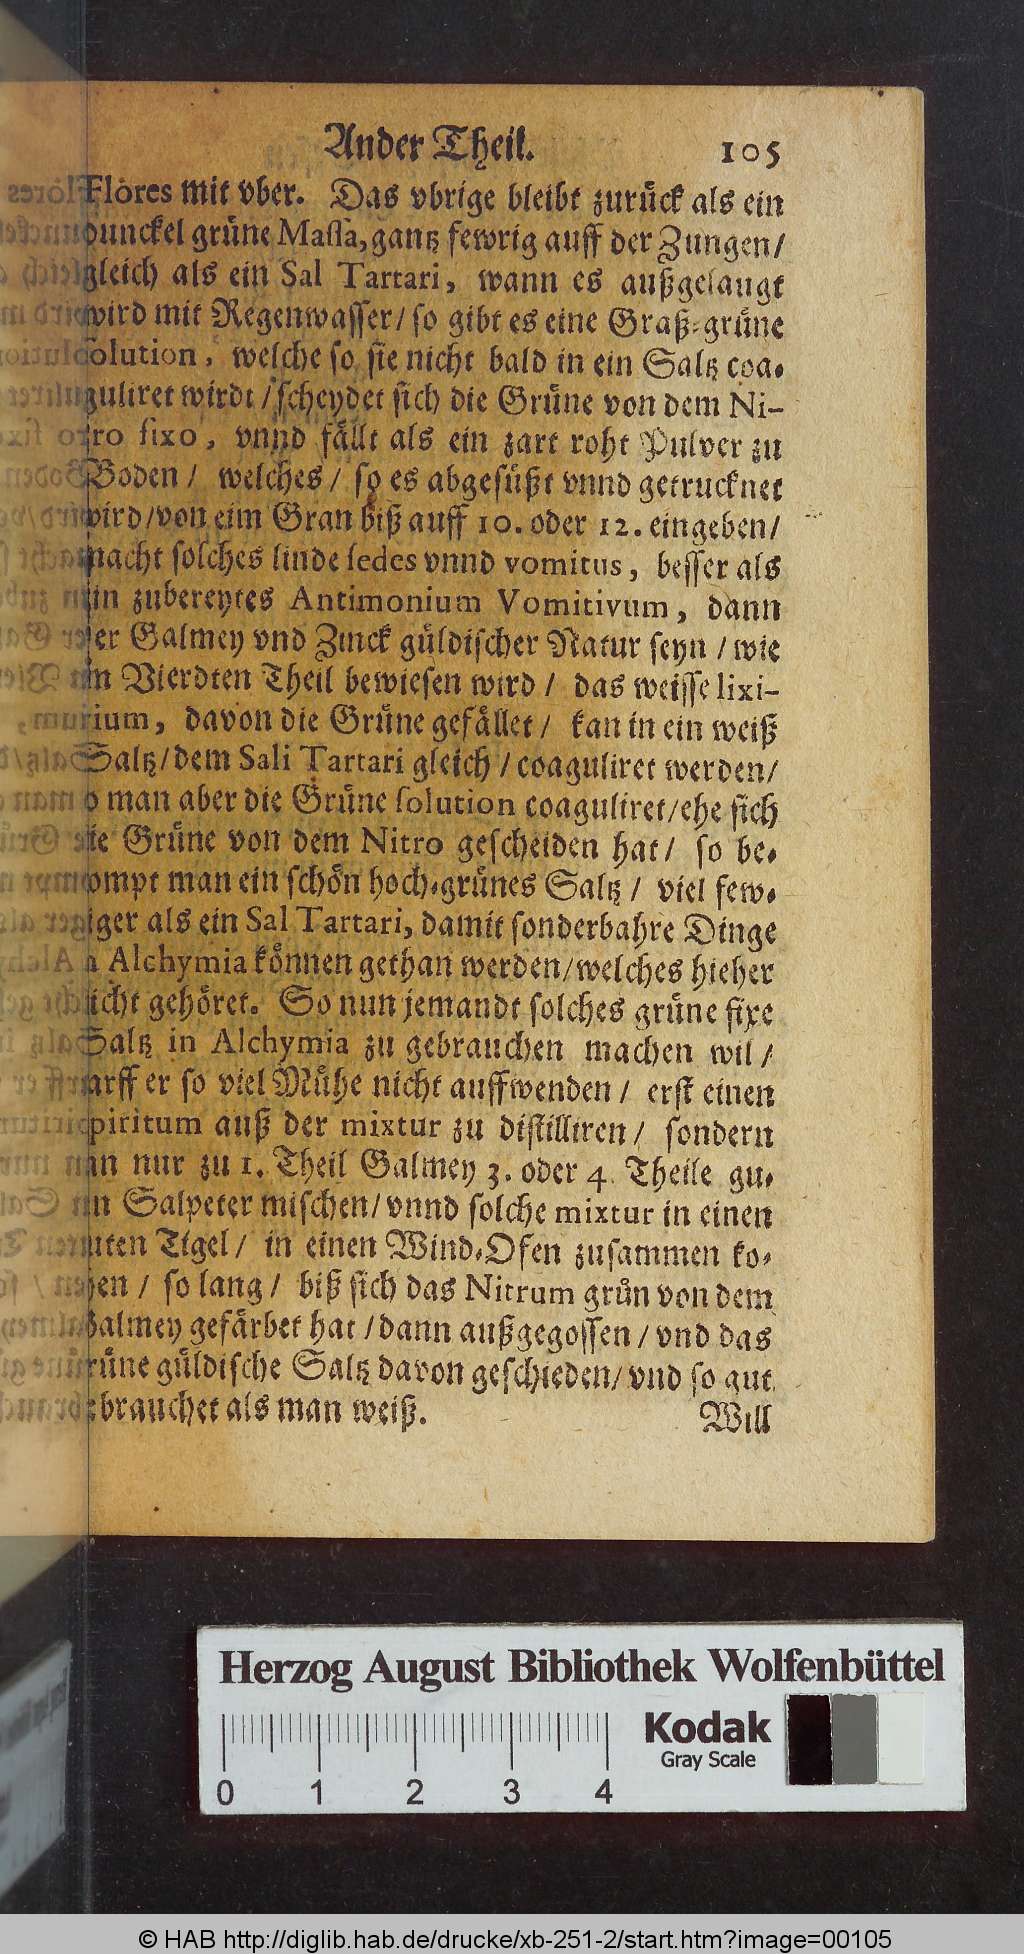 Ander Theil. 105
Flores mit vber. Das vbrige bleibt zurück als ein
dunckel grüne Massa, gantz fewrig auff der Zungen/
gleich als ein Sal Tartari, wann es außgelaugt
wird mit Regenwasser/ so gibt es eine Graß-grüne
solution, welche so sie nicht bald in ein Saltz coa-
guliret wirdt/ scheydet sich die Grüne von dem Ni-
tro fixo, vnnd fällt als ein zart roht Pulver zu
Boden/ welches/ so es abgesüßt vnnd getrucknet
wird/ von eim Gran biß auff 10. oder 12. eingeben/
macht solches linde sedes vnnd vomitus, besser als
ein zubereytes Antimonium Vomitivum, dann
der Galmey vnd Zinck güldischer Natur seyn/ wie
im Vierdten Theil bewiesen wird/ das weisse lixi-
vium, davon die Grüne gefället/ kan in ein weiß
Saltz/ dem Sali Tartari gleich/ coaguliret werden/
so man aber die Grüne solution coaguliret/ ehe sich
die Grüne von dem Nitro gescheiden hat/ so be-
kompt man ein schön hoch-grünes Saltz/ viel few-
riger als ein Sal Tartari, damit sonderbahre Dinge
in Alchymia können gethan werden/ welches hieher
nicht gehöret. So nun jemandt solches grüne fixe
Saltz in Alchymia zu gebrauchen machen wil/
darff er so viel Mühe nicht auffwenden/ erst einen
spiritum auß der mixtur zu distilliren/ sondern
man nur zu 1. Theil Galmey 3. oder 4. Theile gu-
ten Salpeter mischen/ vnnd solche mixtur in einen
guten Tigel/ in einen Wind-Ofen zusammen ko-
chen/ so lang/ biß sich das Nitrum grün von dem
Galmey gefärbet hat/ dann außgegossen/ vnd das
grüne güldische Saltz davon geschieden/ vnd so gut
gebrauchet als man weiß.
Will
Herzog August Bibliothek Wolfenbüttel
Kodak
Gray Scale
0 1 2 3 4
© HAB http://diglib.hab.de/drucke/xb-251-2/start.htm?image=00105